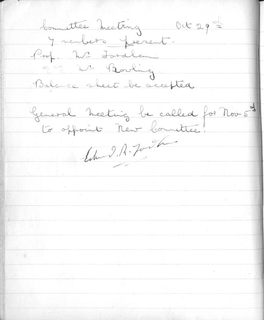 Committee Meeting Oct 29th
7 members present.
Prop. Mr Fordham
Mr Bowling
Balance sheet be accepted
General Meeting be called for Nov 5th
to appoint New Committee.